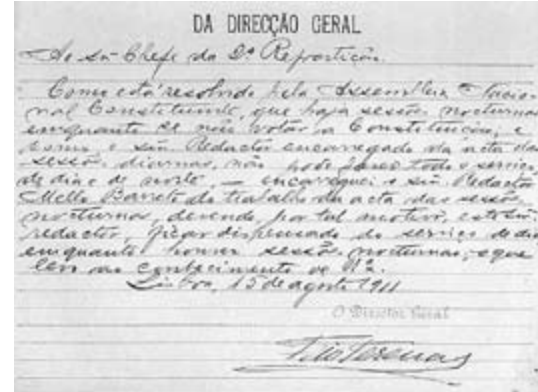 DA DIRECÇÃO GERAL
Ao snr Chefe da 2ª Repartição.
Como está resolvido pela Assemblea Nacio-
nal Constituinte, que haja sessões nocturnas
emquanto se não votar a Constituição, e
como o snr. Redactor encarregado da acta das
sessões diurnas, não pode fazer todo o serviço
de dia e de noite, — encarreguei o snr. Redactor
Mello Barreto do trabalho da acta das sessões
nocturnas, devendo, por tal motivo, este snr.
redactor, ficar dispensado do serviço de dia
emquanto houver sessões nocturnas, o que
levo ao conhecimento de V.ª
Lisboa, 15 de agosto 1911
O Director Geral